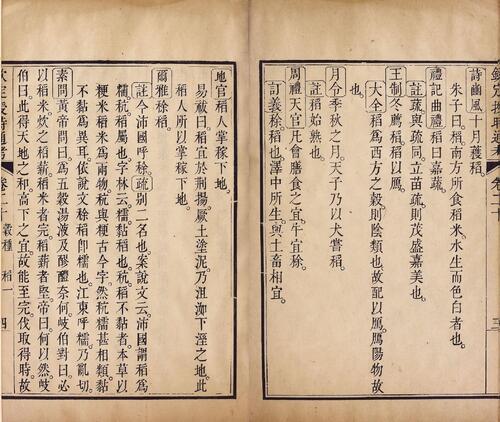 詩豳風十月穫稻。
朱子曰。稻南方所食稻米。水生而色白者也。
禮記曲禮稻曰嘉蔬。
註蔬與疏同。立苗疏。則茂盛嘉美也。
王制冬薦稻。稻以鴈。
大全稻爲西方之穀。則陰類也。故配以鴈。鴈陽物故
也。
月令季秋之月。天子乃以犬嘗稻。
註稻始熟也。
周禮天官凡會膳食之宜。牛宜稌。
訂義稌。稻也。澤中所生。與土畜相宜。
地官稻人掌稼下地。
易祓曰。稻宜於荆揚。厥土塗泥。乃沮洳下溼之地。此
稻人所以掌稼下地。
爾雅稌稻。
註今沛國呼稌。疏别二名也。案說文云。沛國謂稻爲
稬。秔。稻屬也。字林云。糯。黏稻也。秔。稻不黏者。本草以
粳米稻米爲兩物。秔與粳古今字。然秔糯甚相類。黏
不黏爲異耳。依說文稌稻卽糯也。江東呼糯。乃亂切。
素問黃帝問曰。爲五穀湯液及醪醴奈何。岐伯對曰。必
以稻米。炊之稻薪。稻米者完。稻薪者堅。帝曰。何以然。岐
伯曰。此得天地之和。高下之宜。故能至完。伐取得時。故
欽定授時通考 卷二十 穀種 稻一 四